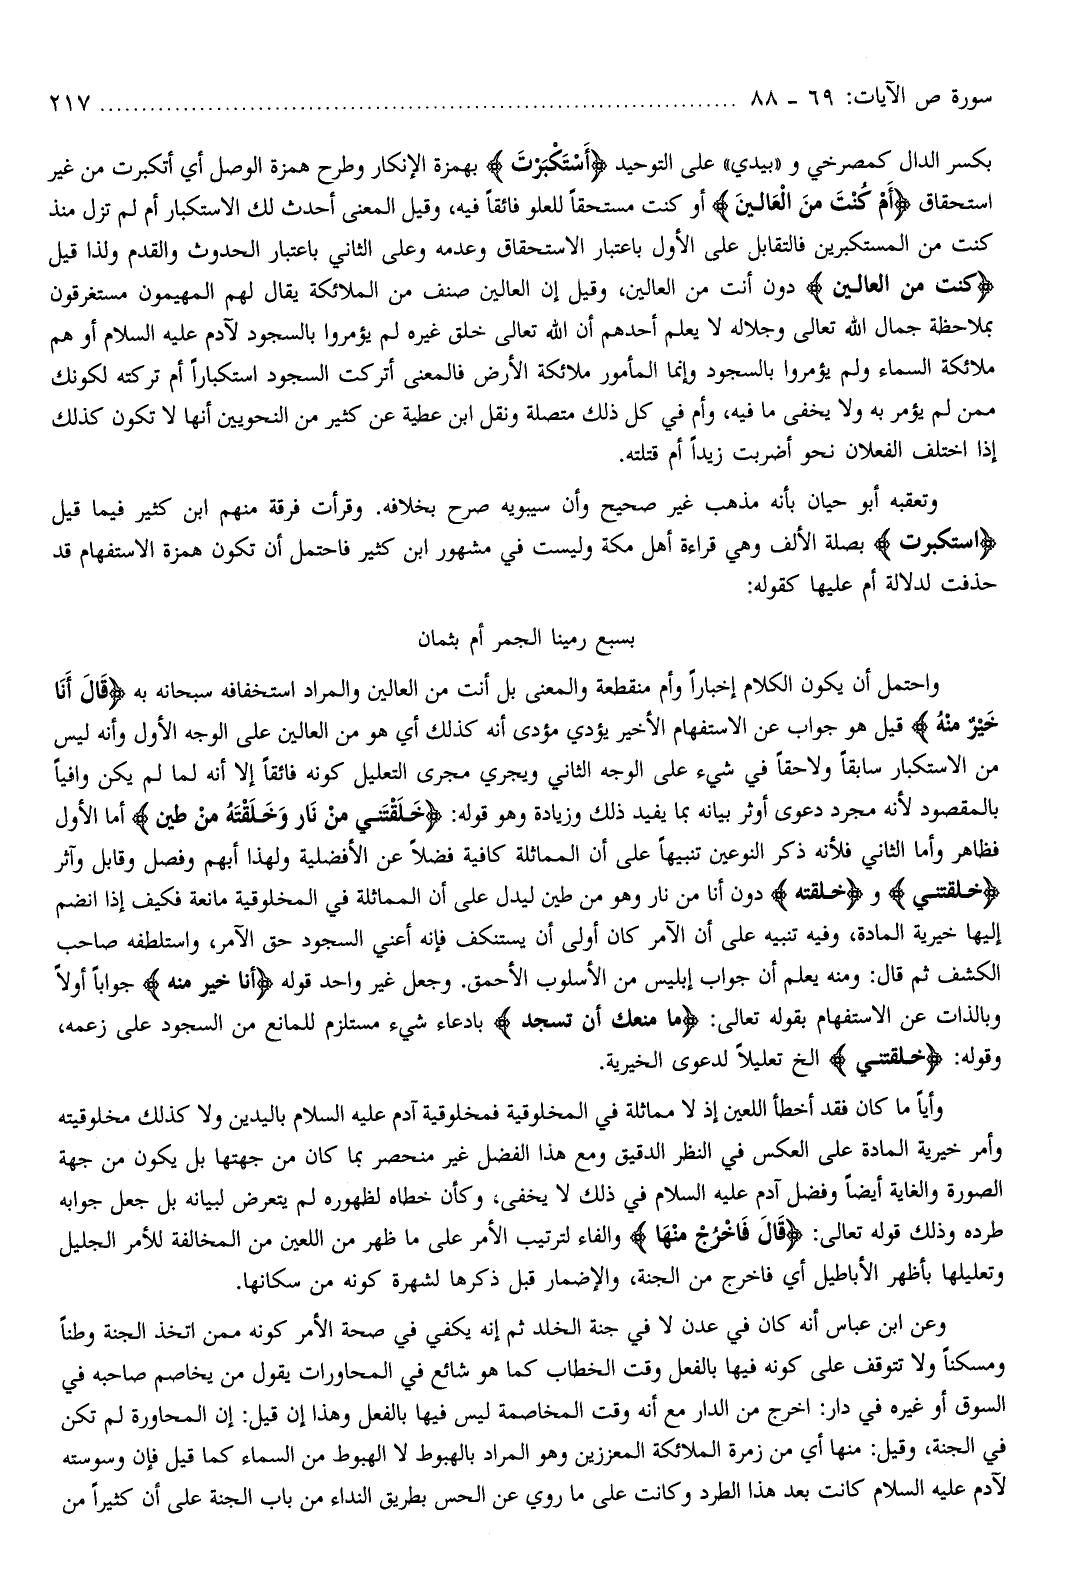 سورة ص الآيات: ٦٩ ـ ٨٨ ........................................................................... ٢١٧
بكسر الدال كمصرخي و «بيدي» على التوحيد ﴿أَسْتَكْبَرْتَ﴾ بهمزة الإنكار وطرح همزة الوصل أي أتكبرت من غير
استحقاق ﴿أَمْ كُنْتَ منَ الْعَالينَ﴾ أو كنت مستحقاً للعلو فائقاً فيه، وقيل المعنى أحدث لك الاستكبار أم لم تزل منذ
كنت من المستكبرين فالتقابل على الأول باعتبار الاستحقاق وعدمه وعلى الثاني باعتبار الحدوث والقدم ولذا قيل
﴿كنت من العالين﴾ دون أنت من العالين، وقيل إن العالين صنف من الملائكة يقال لهم المهيمون مستغرقون
بملاحظة جمال الله تعالى وجلاله لا يعلم أحدهم أن الله تعالى خلق غيره لم يؤمروا بالسجود لآدم عليه السلام أو هم
ملائكة السماء ولم يؤمروا بالسجود وإنما المأمور ملائكة الأرض فالمعنى أتركت السجود استكباراً أم تركته لكونك
ممن لم يؤمر به ولا يخفى ما فيه، وأم في كل ذلك متصلة ونقل ابن عطية عن كثير من النحويين أنها لا تكون كذلك
إذا اختلف الفعلان نحو أضربت زيداً أم قتلته.
وتعقبه أبو حيان بأنه مذهب غير صحيح وأن سيبويه صرح بخلافه. وقرأت فرقة منهم ابن كثير فيما قيل
﴿استكبرت﴾ بصلة الألف وهي قراءة أهل مكة وليست في مشهور ابن كثير فاحتمل أن تكون همزة الاستفهام قد
حذفت لدلالة أم عليها كقوله:
بسبع رمينا الجمر أم بثمان
واحتمل أن يكون الكلام إخباراً وأم منقطعة والمعنى بل أنت من العالين والمراد استخفافه سبحانه به ﴿قَالَ أَنَا
خَيْرٌ منْهُ﴾ قيل هو جواب عن الاستفهام الأخير يؤدي مؤدى أنه كذلك أي هو من العالين على الوجه الأول وأنه ليس
من الاستكبار سابقاً ولاحقاً في شيء على الوجه الثاني ويجري مجرى التعليل كونه فائقاً إلا أنه لما لم يكن وافياً
بالمقصود لأنه مجرد دعوى أوثر بيانه بما يفيد ذلك وزيادة وهو قوله: ﴿خَلَقْتَني منْ نَار وَخَلَقْتَهُ منْ طين﴾ أما الأول
فظاهر وأما الثاني فلأنه ذكر النوعين تنبيهاً على أن المماثلة كافية فضلاً عن الأفضلية ولهذا أبهم وفصل وقابل وآثر
﴿خلقتني﴾ و ﴿خلقته﴾ دون أنا من نار وهو من طين ليدل على أن المماثلة في المخلوقية مانعة فكيف إذا انضم
إليها خيرية المادة، وفيه تنبيه على أن الآمر كان أولى أن يستنكف فإنه أعني السجود حق الآمر، واستلطفه صاحب
الكشف ثم قال: ومنه يعلم أن جواب إبليس من الأسلوب الأحمق. وجعل غير واحد قوله ﴿أنا خير منه﴾ جواباً أولاً
وبالذات عن الاستفهام بقوله تعالى: ﴿ما منعك أن تسجد﴾ بادعاء شيء مستلزم للمانع من السجود على زعمه،
وقوله: ﴿خلقتني﴾ الخ تعليلاً لدعوى الخيرية.
وأياً ما كان فقد أخطأ اللعين إذ لا مماثلة في المخلوقية فمخلوقية آدم عليه السلام باليدين ولا كذلك مخلوقيته
وأمر خيرية المادة على العكس في النظر الدقيق ومع هذا الفضل غير منحصر بما كان من جهتها بل يكون من جهة
الصورة والغاية أيضاً وفضل آدم عليه السلام في ذلك لا يخفى، وكأن خطاه لظهوره لم يتعرض لبيانه بل جعل جوابه
طرده وذلك قوله تعالى: ﴿قَالَ فَاخْرُجْ منْهَا﴾ والفاء لترتيب الأمر على ما ظهر من اللعين من المخالفة للأمر الجليل
وتعليلها بأظهر الأباطيل أي فاخرج من الجنة، والإضمار قبل ذكرها لشهرة كونه من سكانها.
وعن ابن عباس أنه كان في عدن لا في جنة الخلد ثم إنه يكفي في صحة الأمر كونه ممن اتخذ الجنة وطناً
ومسكناً ولا تتوقف على كونه فيها بالفعل وقت الخطاب كما هو شائع في المحاورات يقول من يخاصم صاحبه في
السوق أو غيره في دار: اخرج من الدار مع أنه وقت المخاصمة ليس فيها بالفعل وهذا إن قيل: إن المحاورة لم تكن
في الجنة، وقيل: منها أي من زمرة الملائكة المعززين وهو المراد بالهبوط لا الهبوط من السماء كما قيل فإن وسوسته
لآدم عليه السلام كانت بعد هذا الطرد وكانت على ما روي عن الحس بطريق النداء من باب الجنة على أن كثيراً من